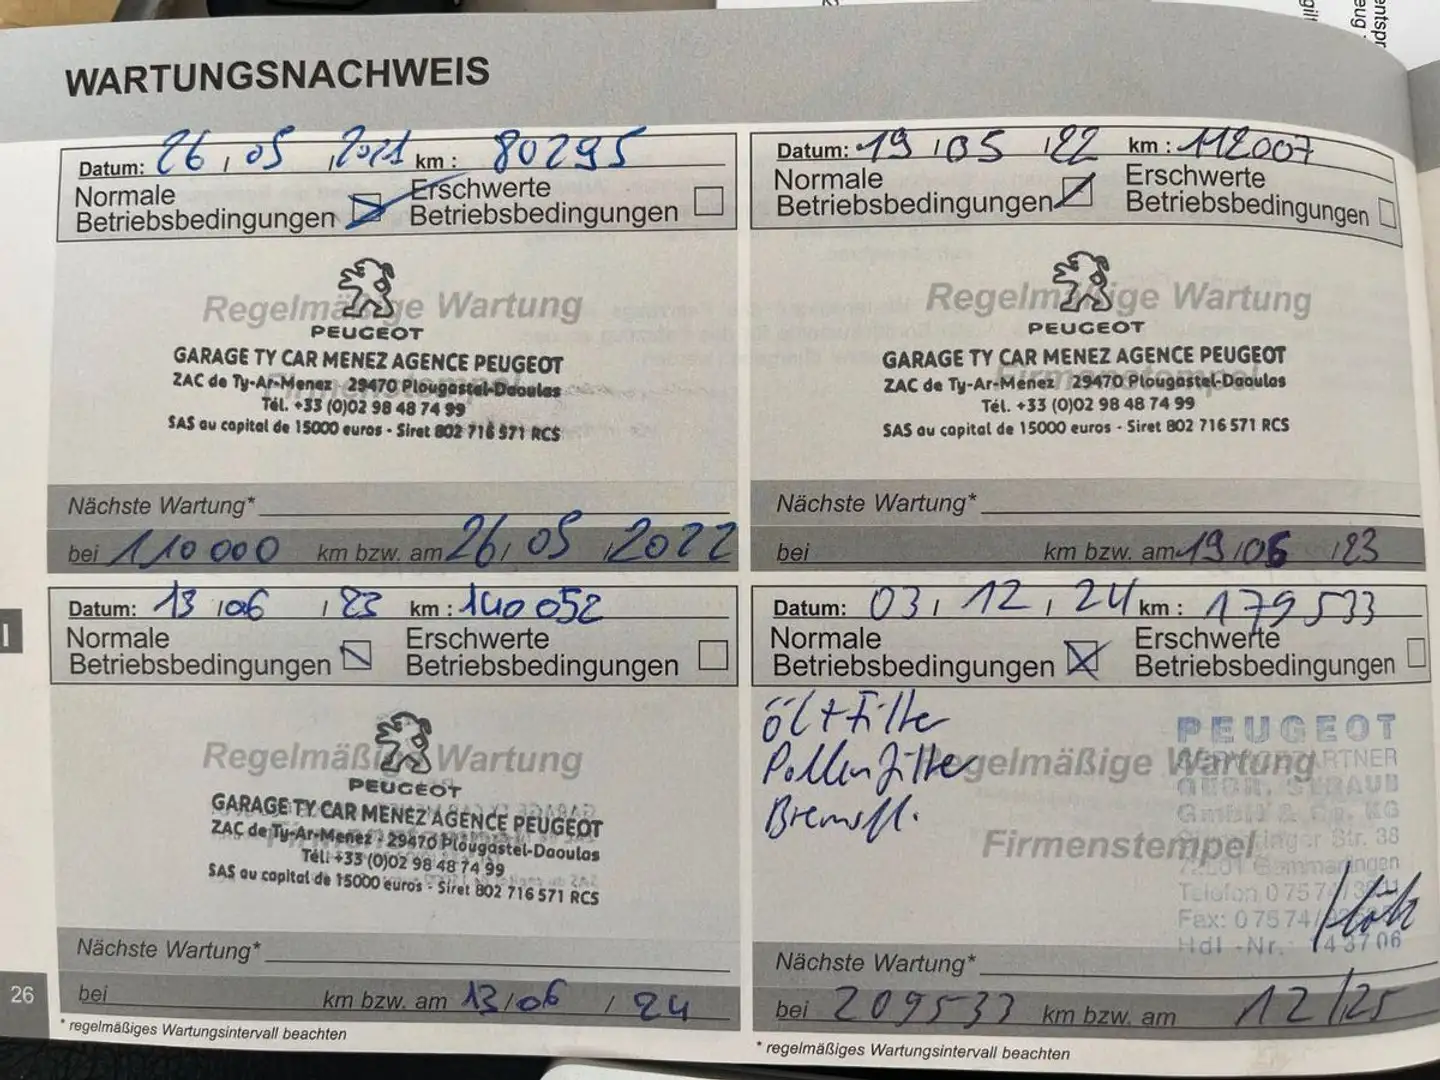 WARTUNGSNACHWEIS
Datum: 26 / 05 / 2021 km : 80295
Normale Betriebsbedingungen
Erschwerte Betriebsbedingungen
Regelmäßige Wartung
PEUGEOT
GARAGE TY CAR MENEZ AGENCE PEUGEOT
ZAC de Ty-Ar-Menez 29470 Plougastel-Daoulas
Tél. +33 (0)02 98 48 74 99
SAS au capital de 15000 euros - Siret 802 716 571 RCS
Nächste Wartung*
bei 110000 km bzw. am 26 / 05 / 2022
Datum: 19 / 05 / 22 km : 112007
Normale Betriebsbedingungen
Erschwerte Betriebsbedingungen
Regelmäßige Wartung
PEUGEOT
GARAGE TY CAR MENEZ AGENCE PEUGEOT
Firmenstempel
ZAC de Ty-Ar-Menez 29470 Plougastel-Daoulas
Tél. +33 (0)02 98 48 74 99
SAS au capital de 15000 euros - Siret 802 716 571 RCS
Nächste Wartung*
bei km bzw. am 19 / 05 / 23
Datum: 13 / 06 / 23 km : 140052
Normale Betriebsbedingungen
Erschwerte Betriebsbedingungen
Regelmäßige Wartung
PEUGEOT
GARAGE TY CAR MENEZ AGENCE PEUGEOT
ZAC de Ty-Ar-Menez - 29470 Plougastel-Daoulas
Tél: +33 (0)02 98 48 74 99
SAS au capital de 15000 euros - Siret 802 716 571 RCS
Nächste Wartung*
bei km bzw. am 13 / 06 / 24
* regelmäßiges Wartungsintervall beachten
Datum: 03 / 12 / 24 km : 179533
Normale Betriebsbedingungen
Erschwerte Betriebsbedingungen
Öl + Filter
Pollenfilter
Bremsfl.
Regelmäßige Wartung
Firmenstempel
PEUGEOT
GEBR. STRAUB
GmbH & Co. KG
Str. 38
Gammertingen
Telefon 07574/
Fax: 07574/
Hdl -Nr.: 143706
Nächste Wartung*
bei 209533 km bzw. am 12/25
* regelmäßiges Wartungsintervall beachten
26